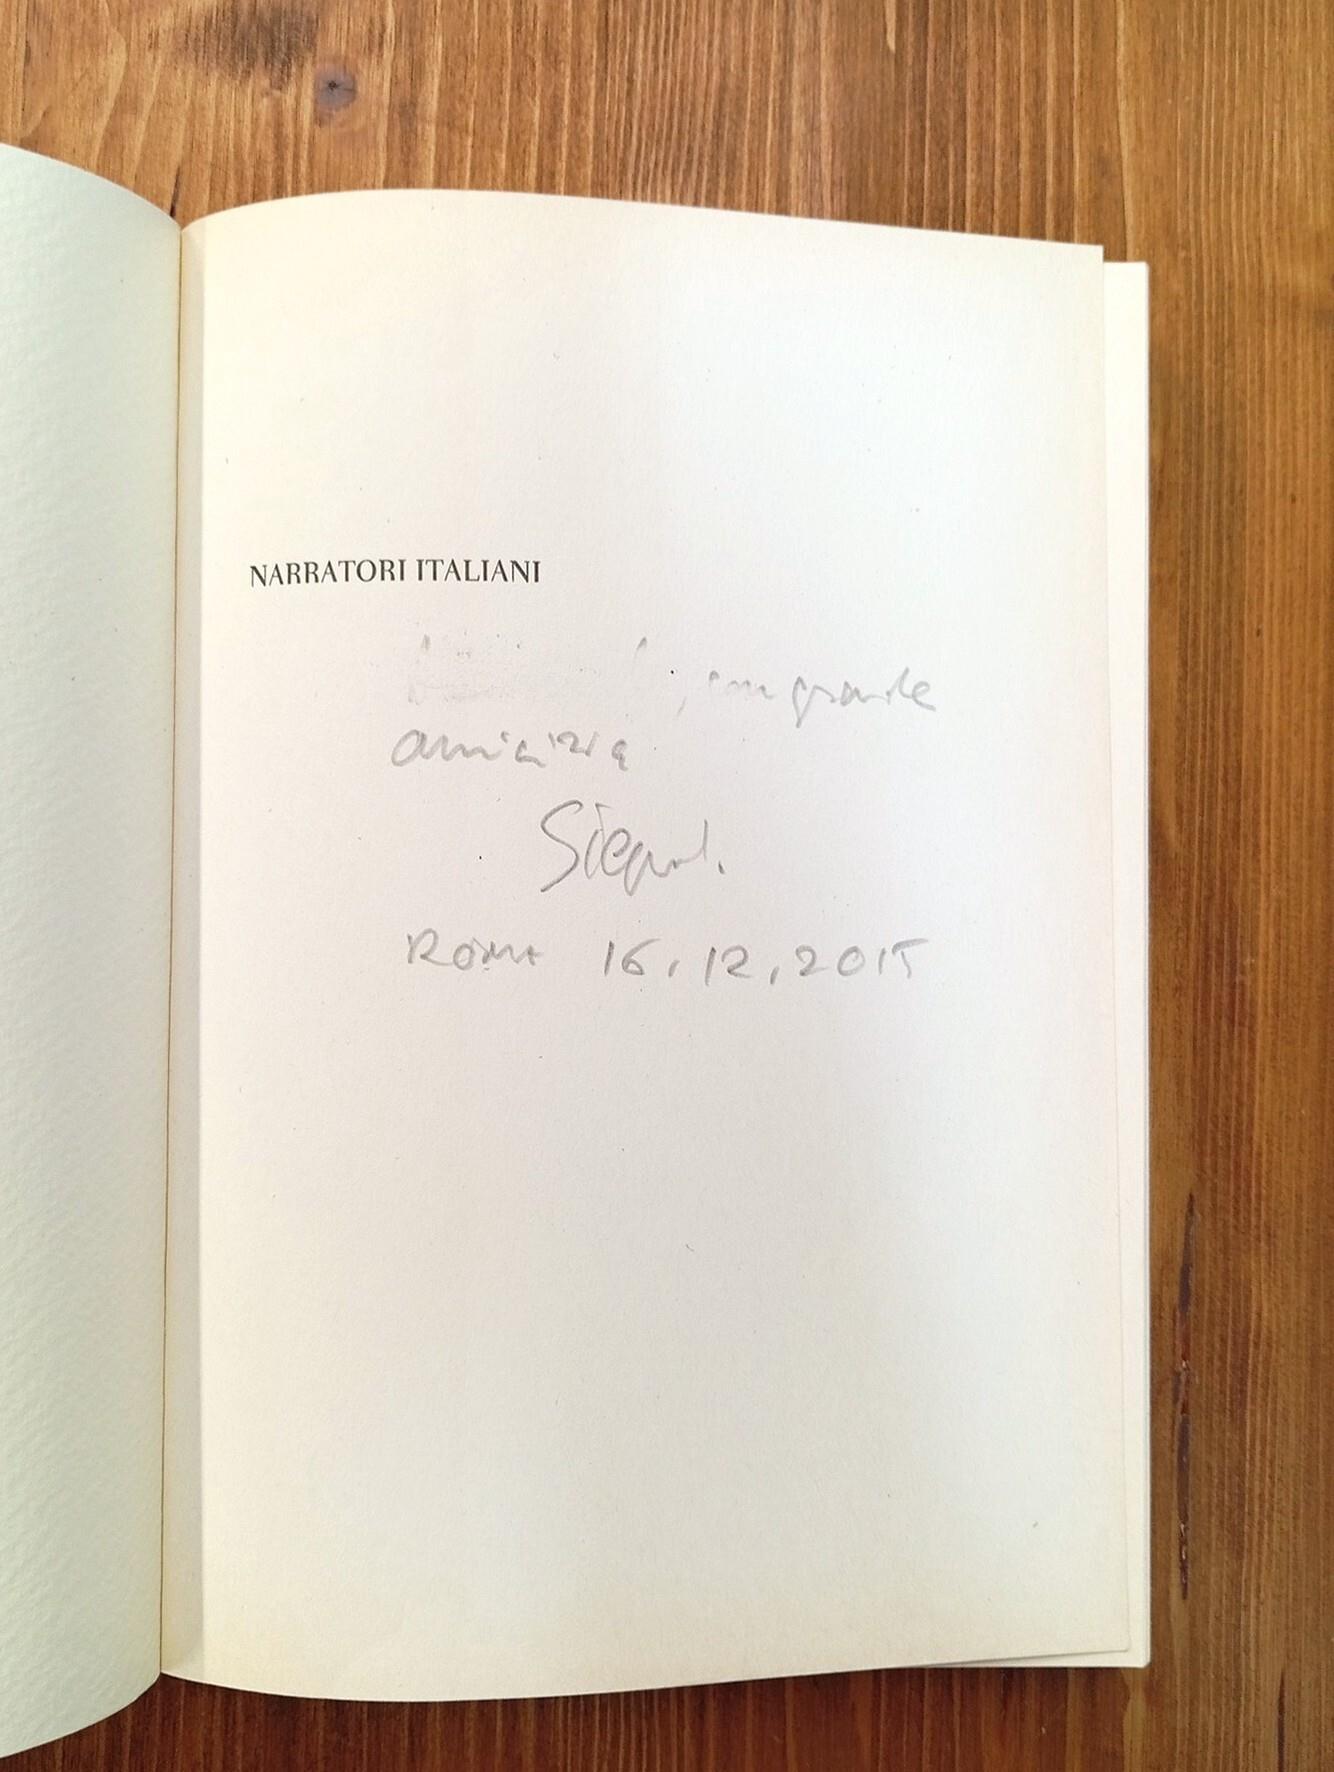 NARRATORI ITALIANI
, con grande
amicizia
ROMA 16.12.2015